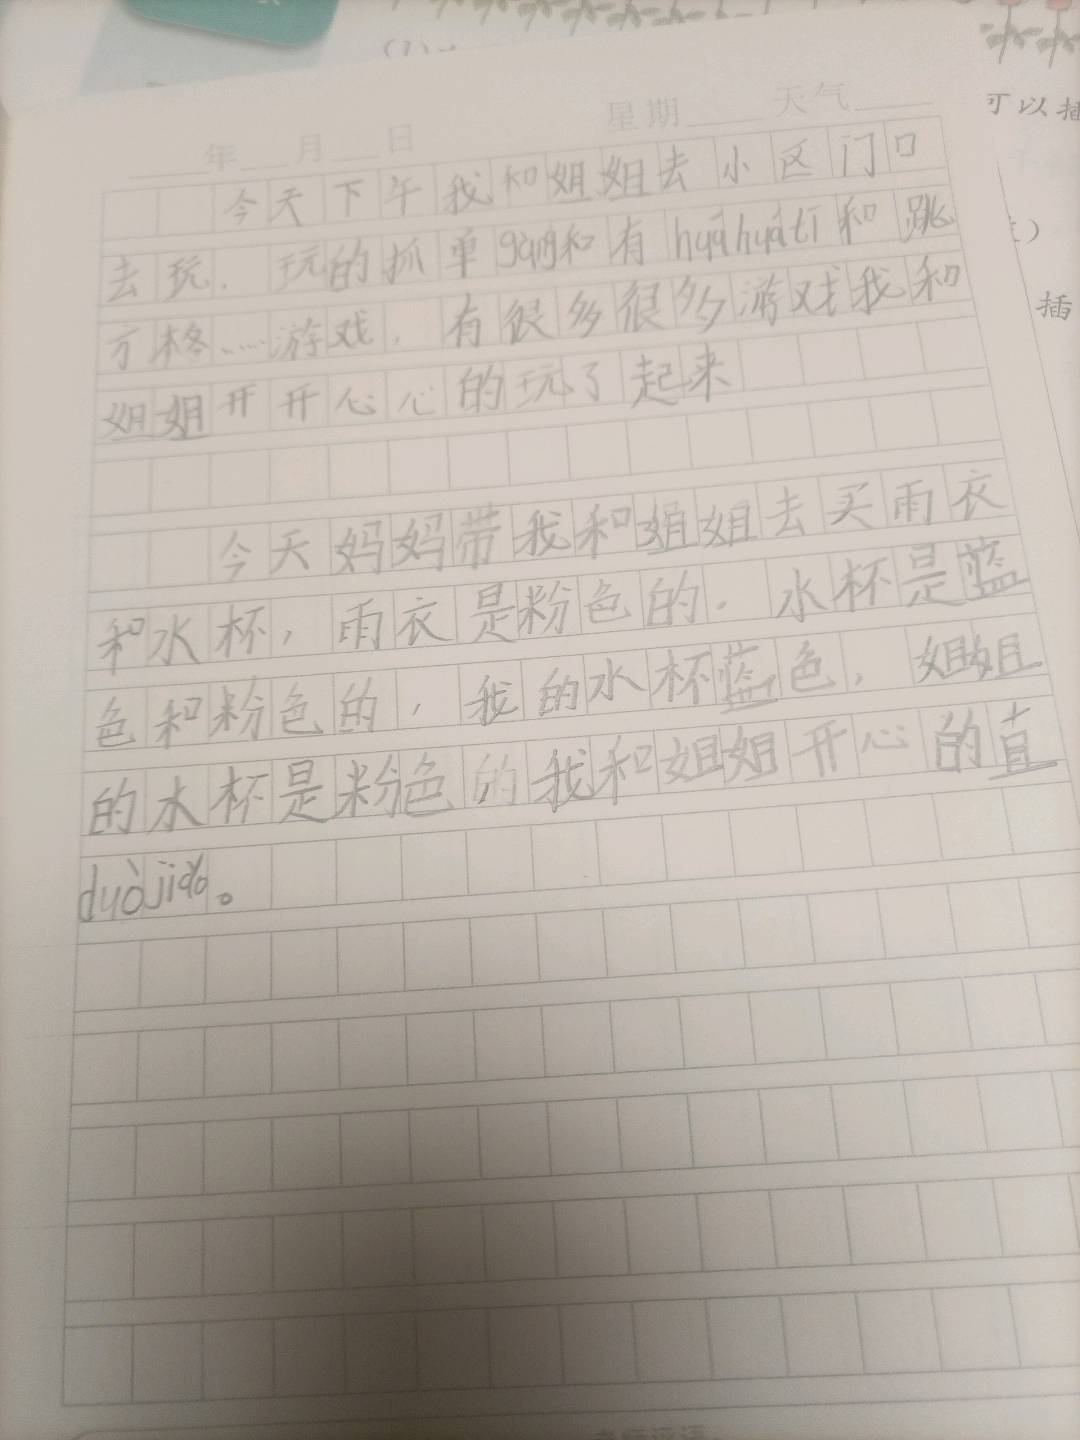 年 月 日 星期 天气
今天下午我和姐姐去小区门口
去玩，玩的抓单gàng和有huáhuátī和跳
方格……游戏，有很多很多游戏我和
姐姐开开心心的玩了起来
今天妈妈带我和姐姐去买雨衣
和水杯，雨衣是粉色的，水杯是蓝
色和粉色的，我的水杯蓝色，姐姐
的水杯是粉色的我和姐姐开心的直
duòjiǎo。
可以插
插